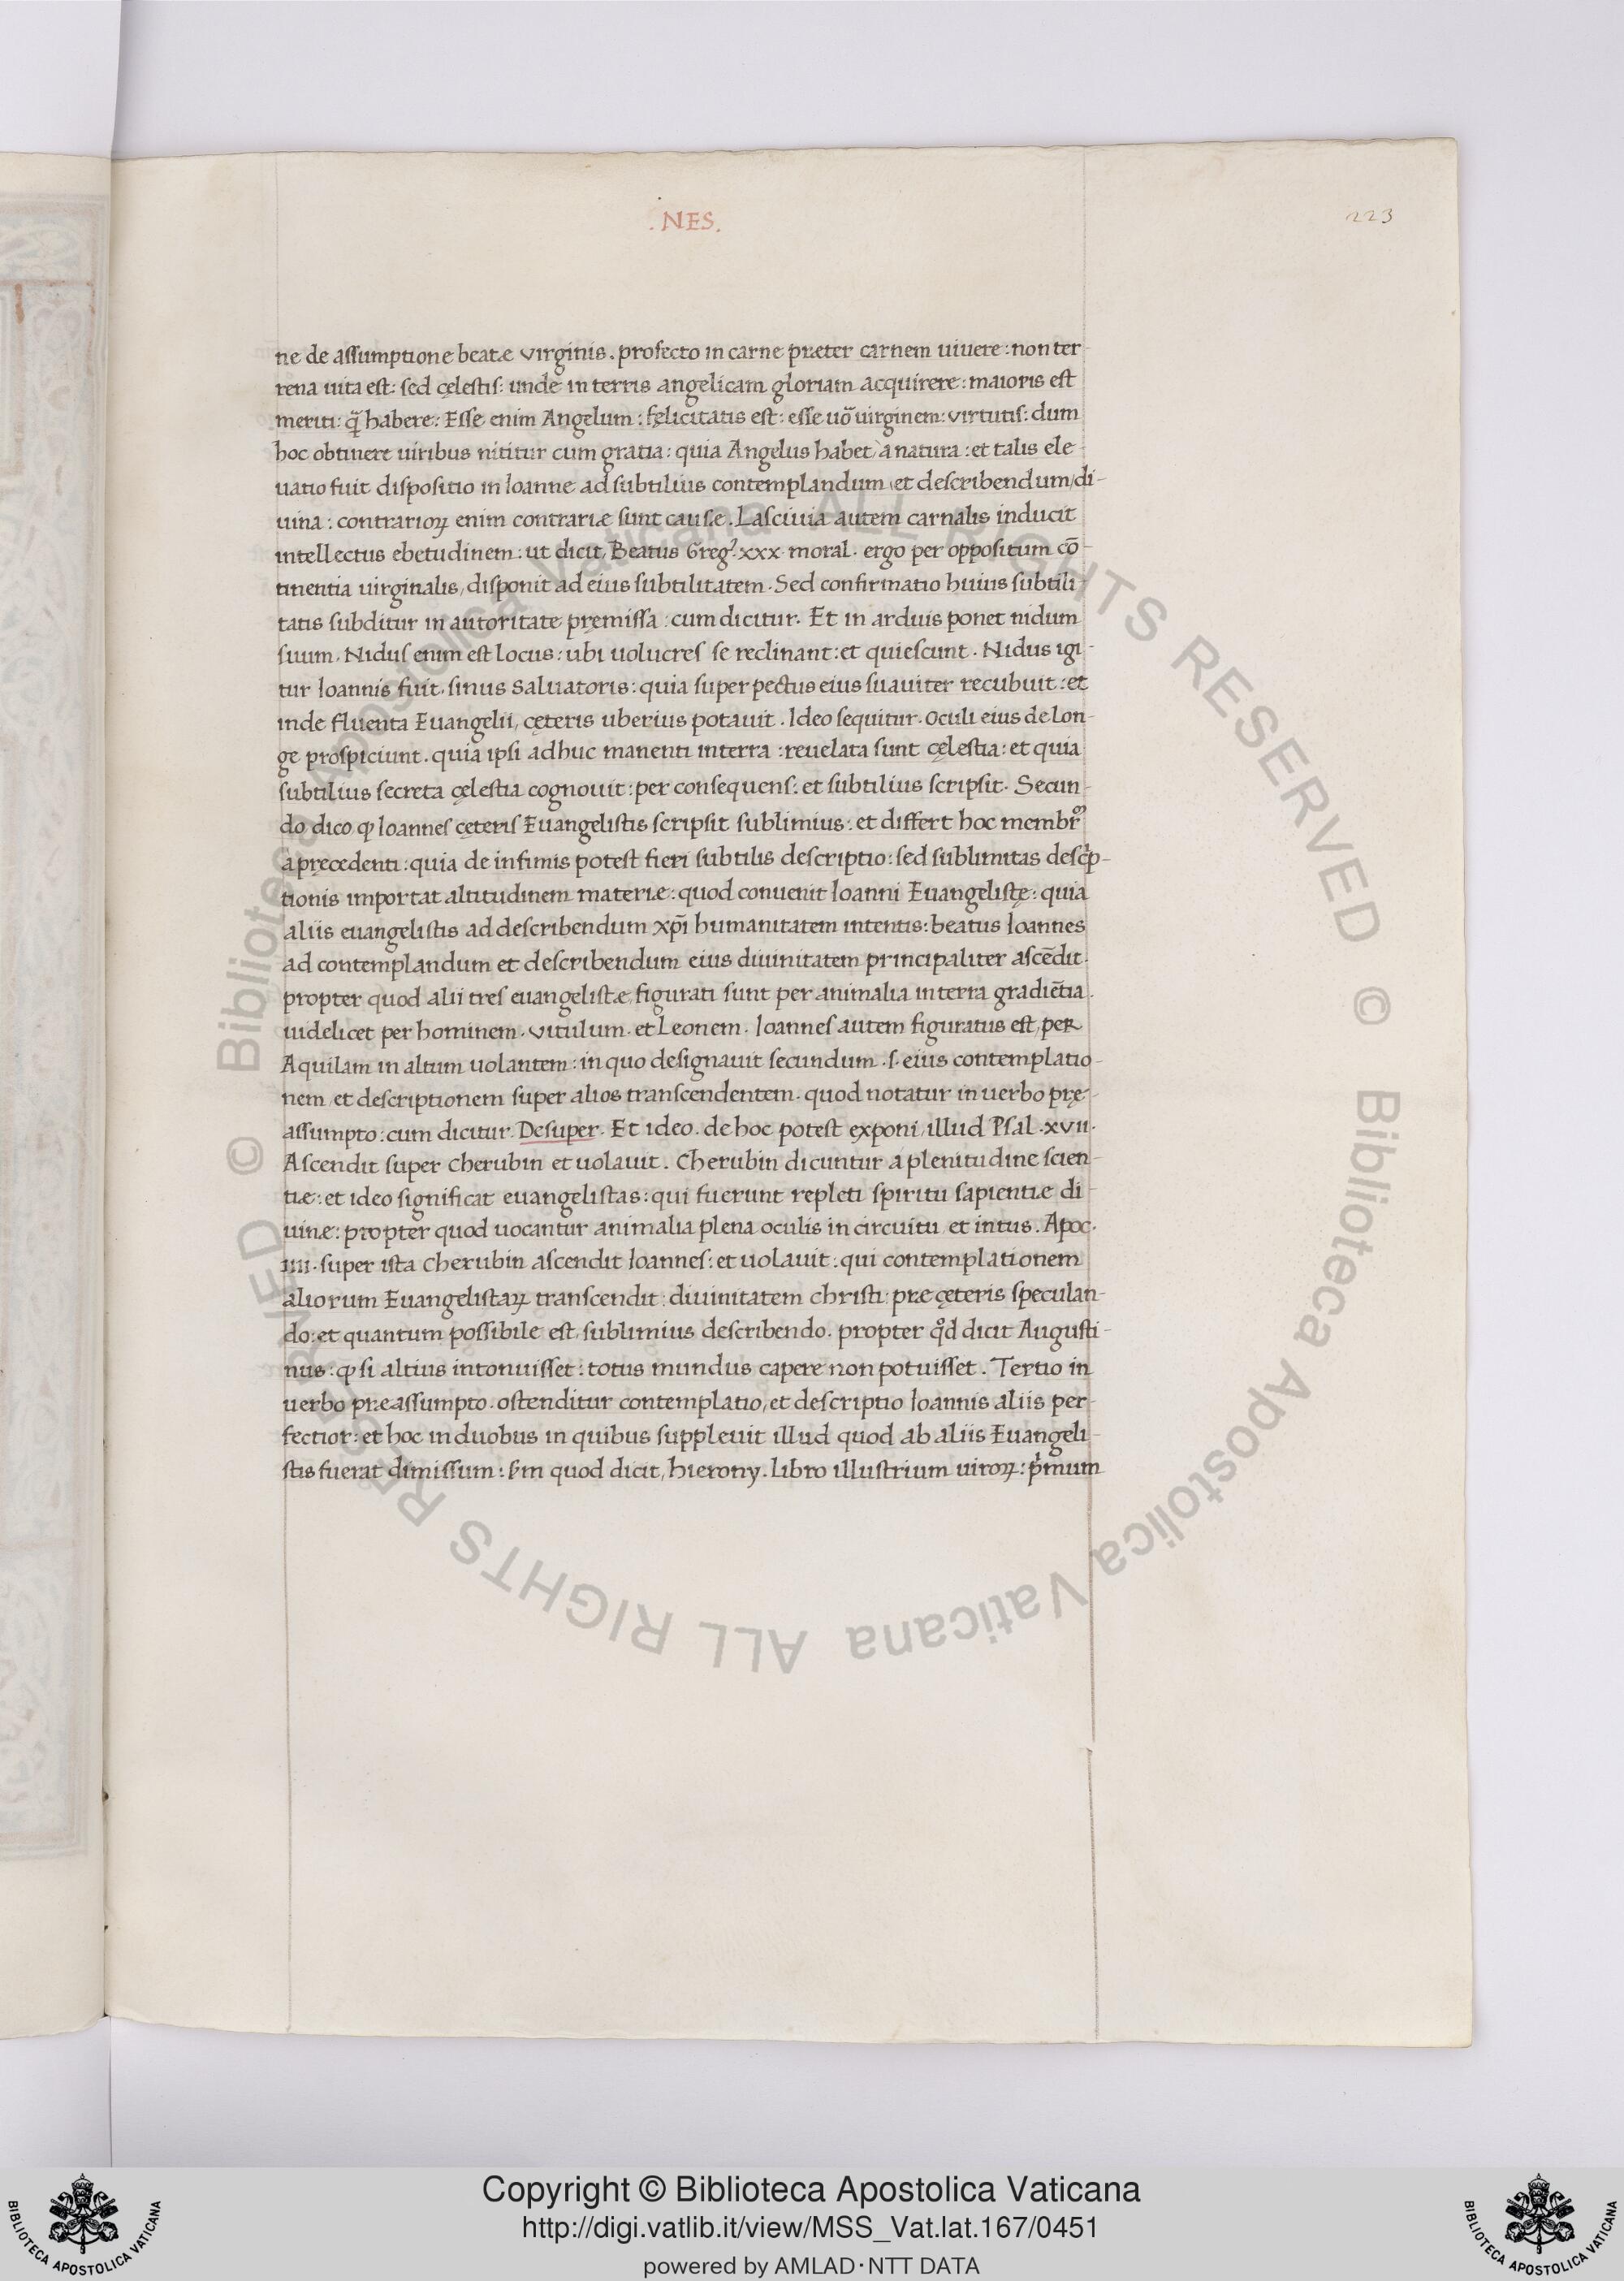 .NES.
223
ne de assumptione beatæ virginis. profecto in carne præter carnem uiuere: non ter-
rena uita est: sed cęlestis: unde in terris angelicam gloriam acquirere: maioris est
meriti: q̃ habere: Esse enim Angelum: fęlicitatis est: esse uo᷒ uirginem: virtutis: dum
hoc obtinere uiribus nititur cum gratia: quia Angelus habet à natura: et talis ele-
uatio fuit dispositio in Ioanne ad subtilius contemplandum et describendum/di-
uina: contrarioꝝ enim contrariæ sunt causæ. Lasciuia autem carnalis inducit
intellectus ebetudinem: ut dicit, Beatus Greg.ꝰ xxx. moral. ergo per oppositum cō-
tinentia uirginalis, disponit ad eius subtilitatem. Sed confirmatio huius subtili-
tatis subditur in autoritate pręmissa: cum dicitur. Et in arduis ponet nidum
suum. Nidus enim est locus: ubi uolucres se reclinant: et quiescunt. Nidus igi-
tur Ioannis fuit, sinus Saluatoris: quia super pectus eius suauiter recubuit: et
inde fluenta Euangelii, cęteris uberius potauit. Ideo sequitur. Oculi eius de lon-
ge prospiciunt. quia ipsi adhuc manenti interra: reuelata sunt cęlestia: et quia
subtilius secreta cęlestia cognouit: per consequens: et subtilius scripsit. Secun-
do dico ꝙ Ioannes cęteris Euangelistis scripsit sublimius: et differt hoc membrͫ
à pręcedenti: quia de infimis potest fieri subtilis descriptio: sed sublimitas descͥp-
tionis importat altitudinem materiæ: quod conuenit Ioanni Euangelistę: quia
aliis euangelistis ad describendum xp̄i humanitatem intentis: beatus Ioannes
ad contemplandum et describendum eius diuinitatem principaliter ascēdit.
propter quod alii tres euangelistæ, figurati sunt per animalia interra gradiētia.
uidelicet per hominem. vitulum. et Leonem. Ioannes autem figuratus est, per
Aquilam in altum uolantem: in quo designauit secundum .s. eius contemplatio-
nem et descriptionem super alios transcendentem. quod notatur in uerbo pre-
assumpto: cum dicitur. Desuper. Et ideo. de hoc potest exponi, illud Psal. xvii.
Ascendit super cherubin et uolauit. Cherubin dicuntur a plenitudine scien-
tiæ: et ideo significat euangelistas: qui fuerunt repleti spiritu sapientiæ di-
uinæ: propter quod uocantur animalia plena oculis in circuitu et intus. Apoc.
iiii. super ista cherubin ascendit Ioannes: et uolauit: qui contemplationem
aliorum Euangelistaꝝ transcendit: diuinitatem christi: præ cęteris speculan-
do: et quantum possibile est, sublimius describendo. propter qͦd dicit Augusti-
nus: ꝙ si altius intonuisset: totus mundus capere non potuisset. Tertio in
uerbo præassumpto. ostenditur contemplatio, et descriptio Ioannis aliis per-
fectior: et hoc in duobus in quibus suppleuit illud quod ab aliis Euangeli-
stis fuerat dimissum: ẜm quod dicit, hierony. libro illustrium uiroꝝ: pͥmum
© Biblioteca Apostolica Vaticana ALL RIGHTS RESERVED © Biblioteca Apostolica Vaticana ALL RIGHTS RESERVED
Copyright © Biblioteca Apostolica Vaticana
http://digi.vatlib.it/view/MSS_Vat.lat.167/0451
powered by AMLAD·NTT DATA
BIBLIOTECA APOSTOLICA VATICANA
BIBLIOTECA APOSTOLICA VATICANA